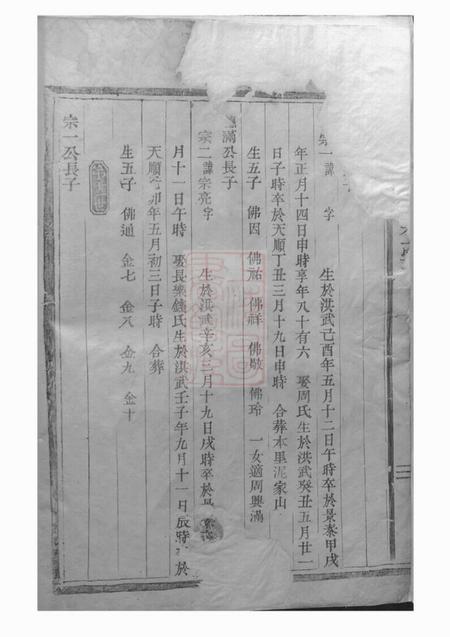 宗一諱 字 生於洪武己酉年五月十二日午時卒於景泰甲戌
年正月十四日申時享年八十有六 娶周氏生於洪武癸丑五月廿一
日子時卒於天順丁丑三月十九日申時 合葬本里泥家山
生五子 佛因 佛祐 佛祥 佛敬 佛玲 一女適周興滿
滿公長子
宗二諱宗亮字 生於洪武辛亥三月十九日戌時卒於景泰
月十一日午時 娶長樂錢氏生於洪武壬子年九月十一日辰時 於
天順 卯年五月初三日子時 合葬
生五子 佛通 金七 金八 金九 金十
宗一公長子